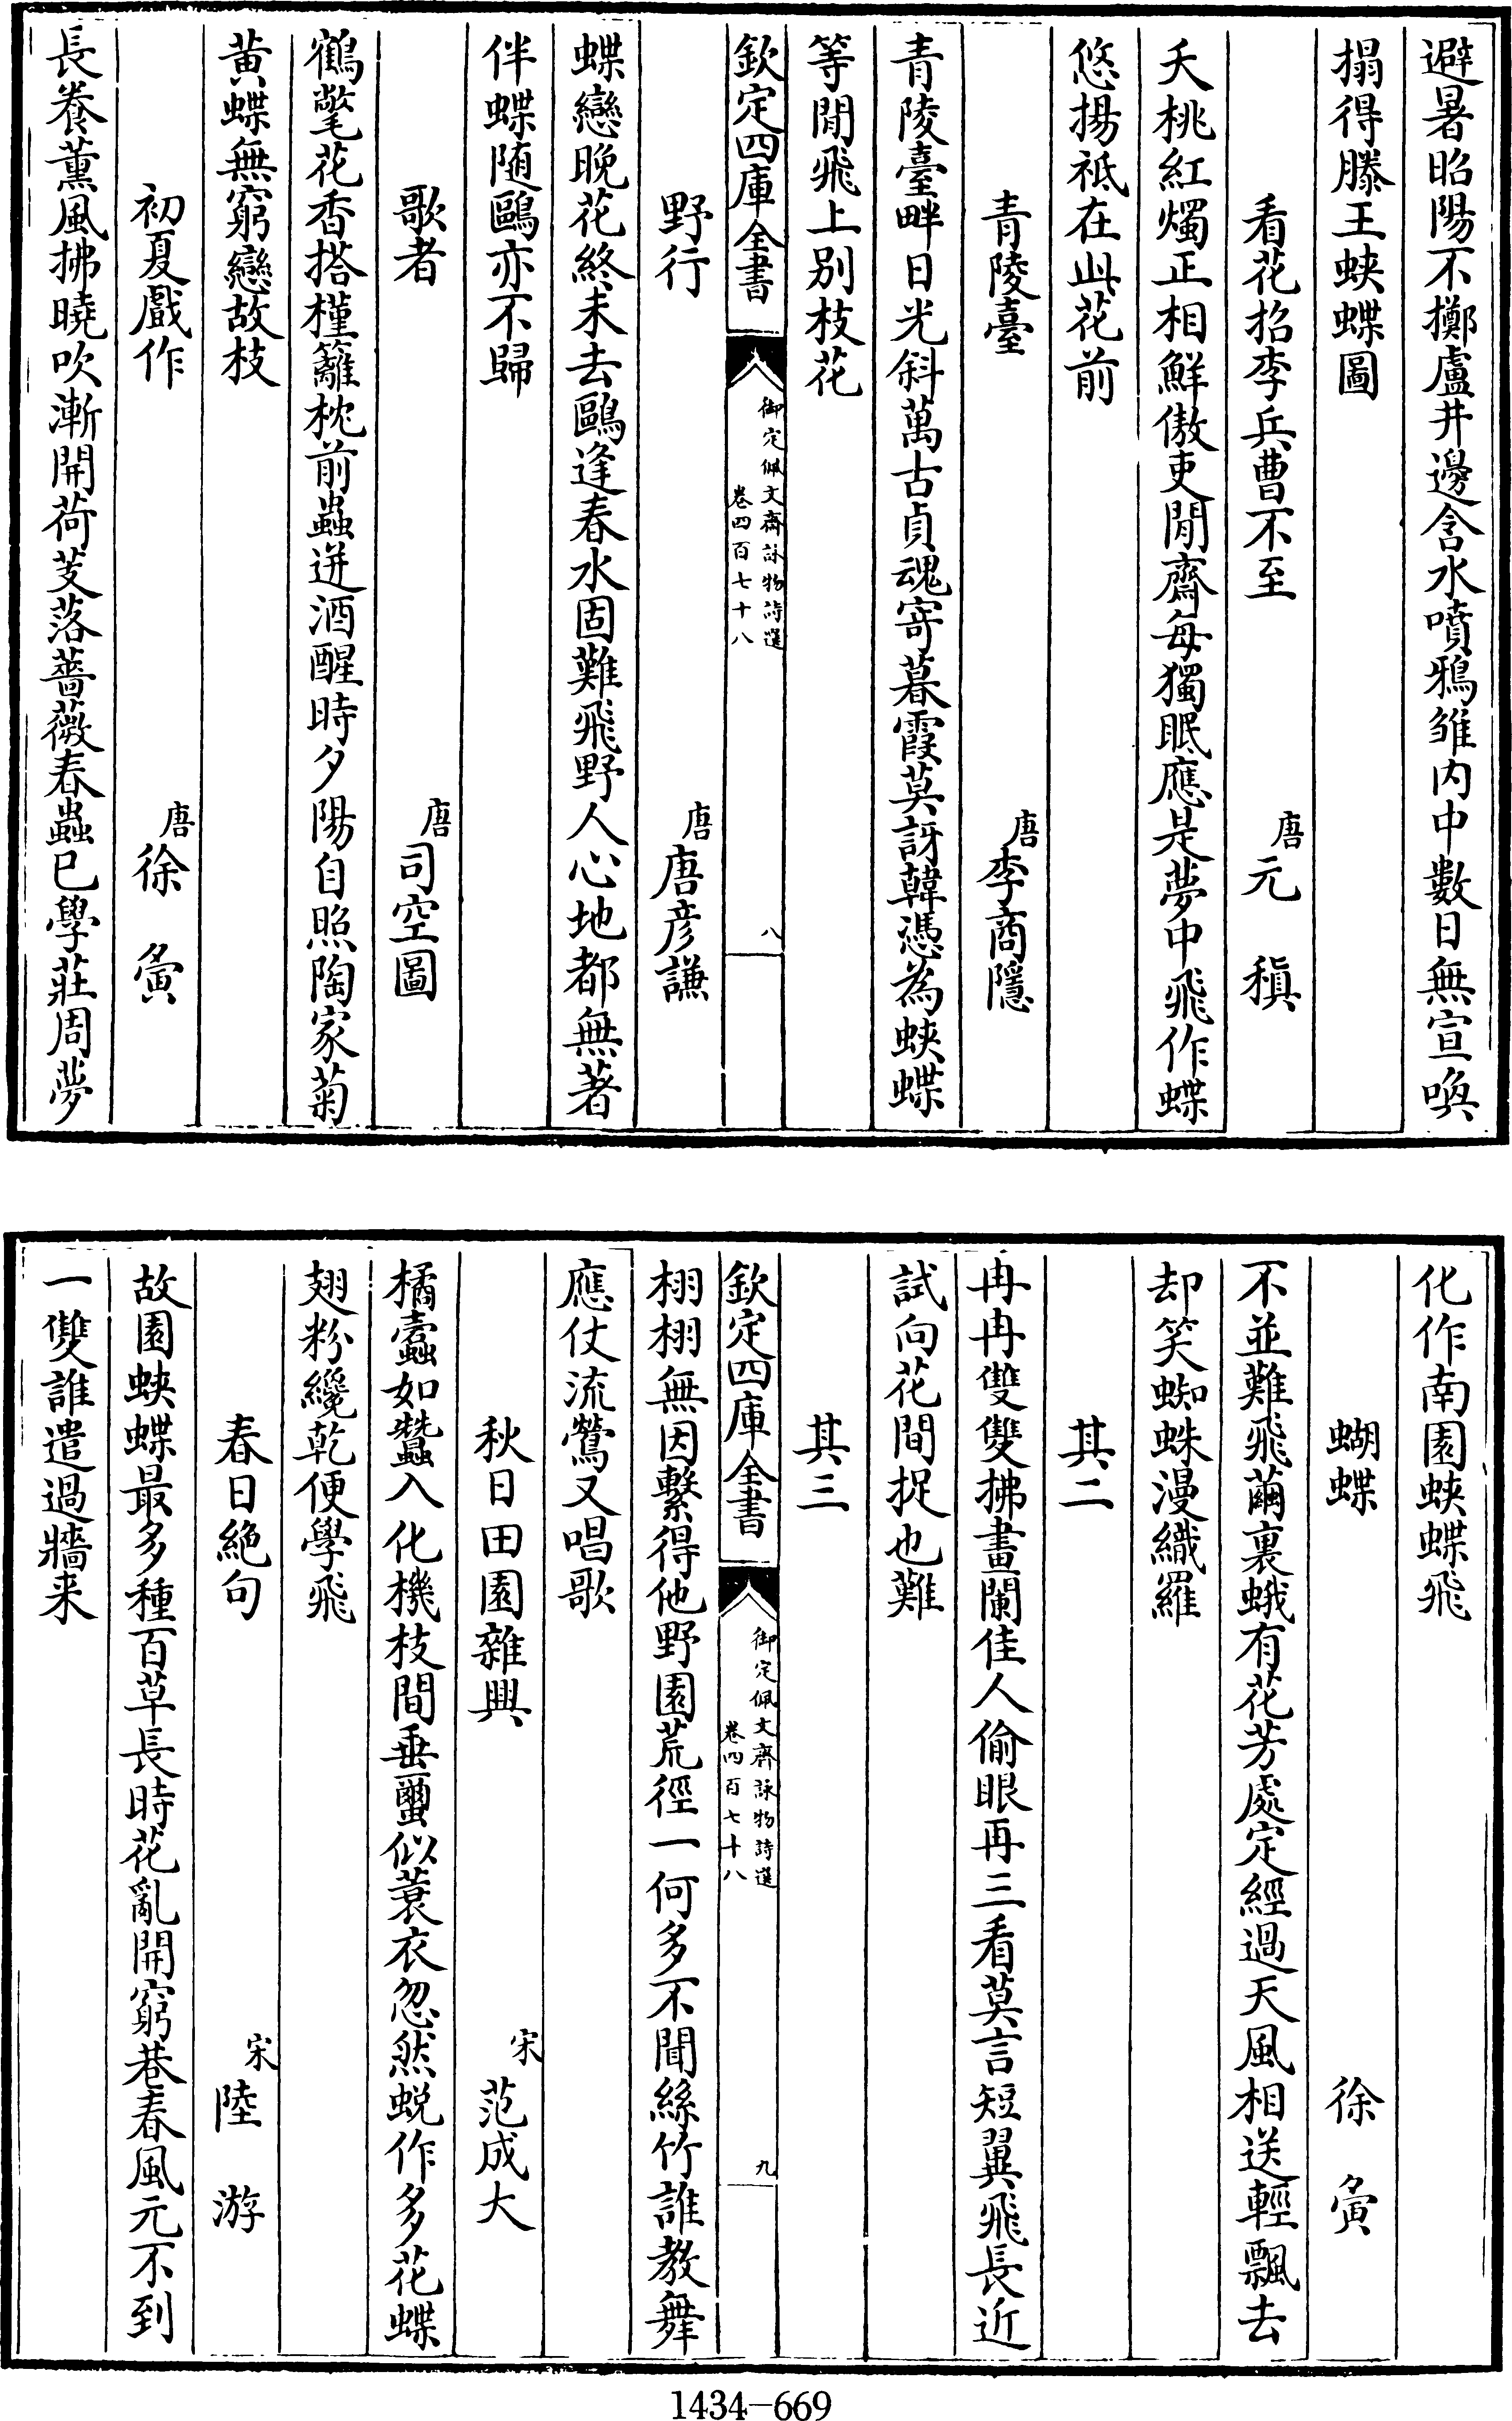 避暑昭陽不擲盧井邊含水噴鴉雛内中數日無宣喚
搨得滕王蛺蝶圖
看花招李兵曹不至
唐元稹
夭桃紅燭正相鮮傲吏閒齋每獨眠應是夢中飛作蝶
悠揚祗在此花前
青陵臺
唐李商隱
青陵臺畔日光斜萬古貞魂寄暮霞莫訝韓憑為蛺蝶
等閒飛上别枝花
欽定四庫全書
御定佩文齋詠物詩選
卷四百七十八
八
野行
唐唐彦謙
蝶戀晚花終未去鷗逢春水固難飛野人心地都無著
伴蝶随鷗亦不歸
歌者
唐司空圖
鶴氅花香搭槿籬枕前蛩迸酒醒時夕陽自照陶家菊
黄蝶無窮戀故枝
初夏戲作
唐徐夤
長養薰風拂曉吹漸開荷芰落薔薇春蟲已學莊周夢
化作南園蛺蝶飛
蝴蝶
徐夤
不並難飛繭裏蛾有花芳處定經過天風相送輕飄去
却笑蜘蛛漫織羅
其二
冉冉雙雙拂畫闌佳人偷眼再三看莫言短翼飛長近
試向花間捉也難
其三
欽定四庫全書
御定佩文齋詠物詩選
卷四百七十八
九
栩栩無因繫得他野園荒徑一何多不聞絲竹誰教舞
應仗流鶯又唱歌
秋日田園雜興
宋范成大
橘蠹如蠶入化機枝間垂蠒似蓑衣忽然蜕作多花蝶
翅粉纔乾便學飛
春日絶句
宋陸游
故園蛺蝶最多種百草長時花亂開窮巷春風元不到
一雙誰遣過牆来
1434-669